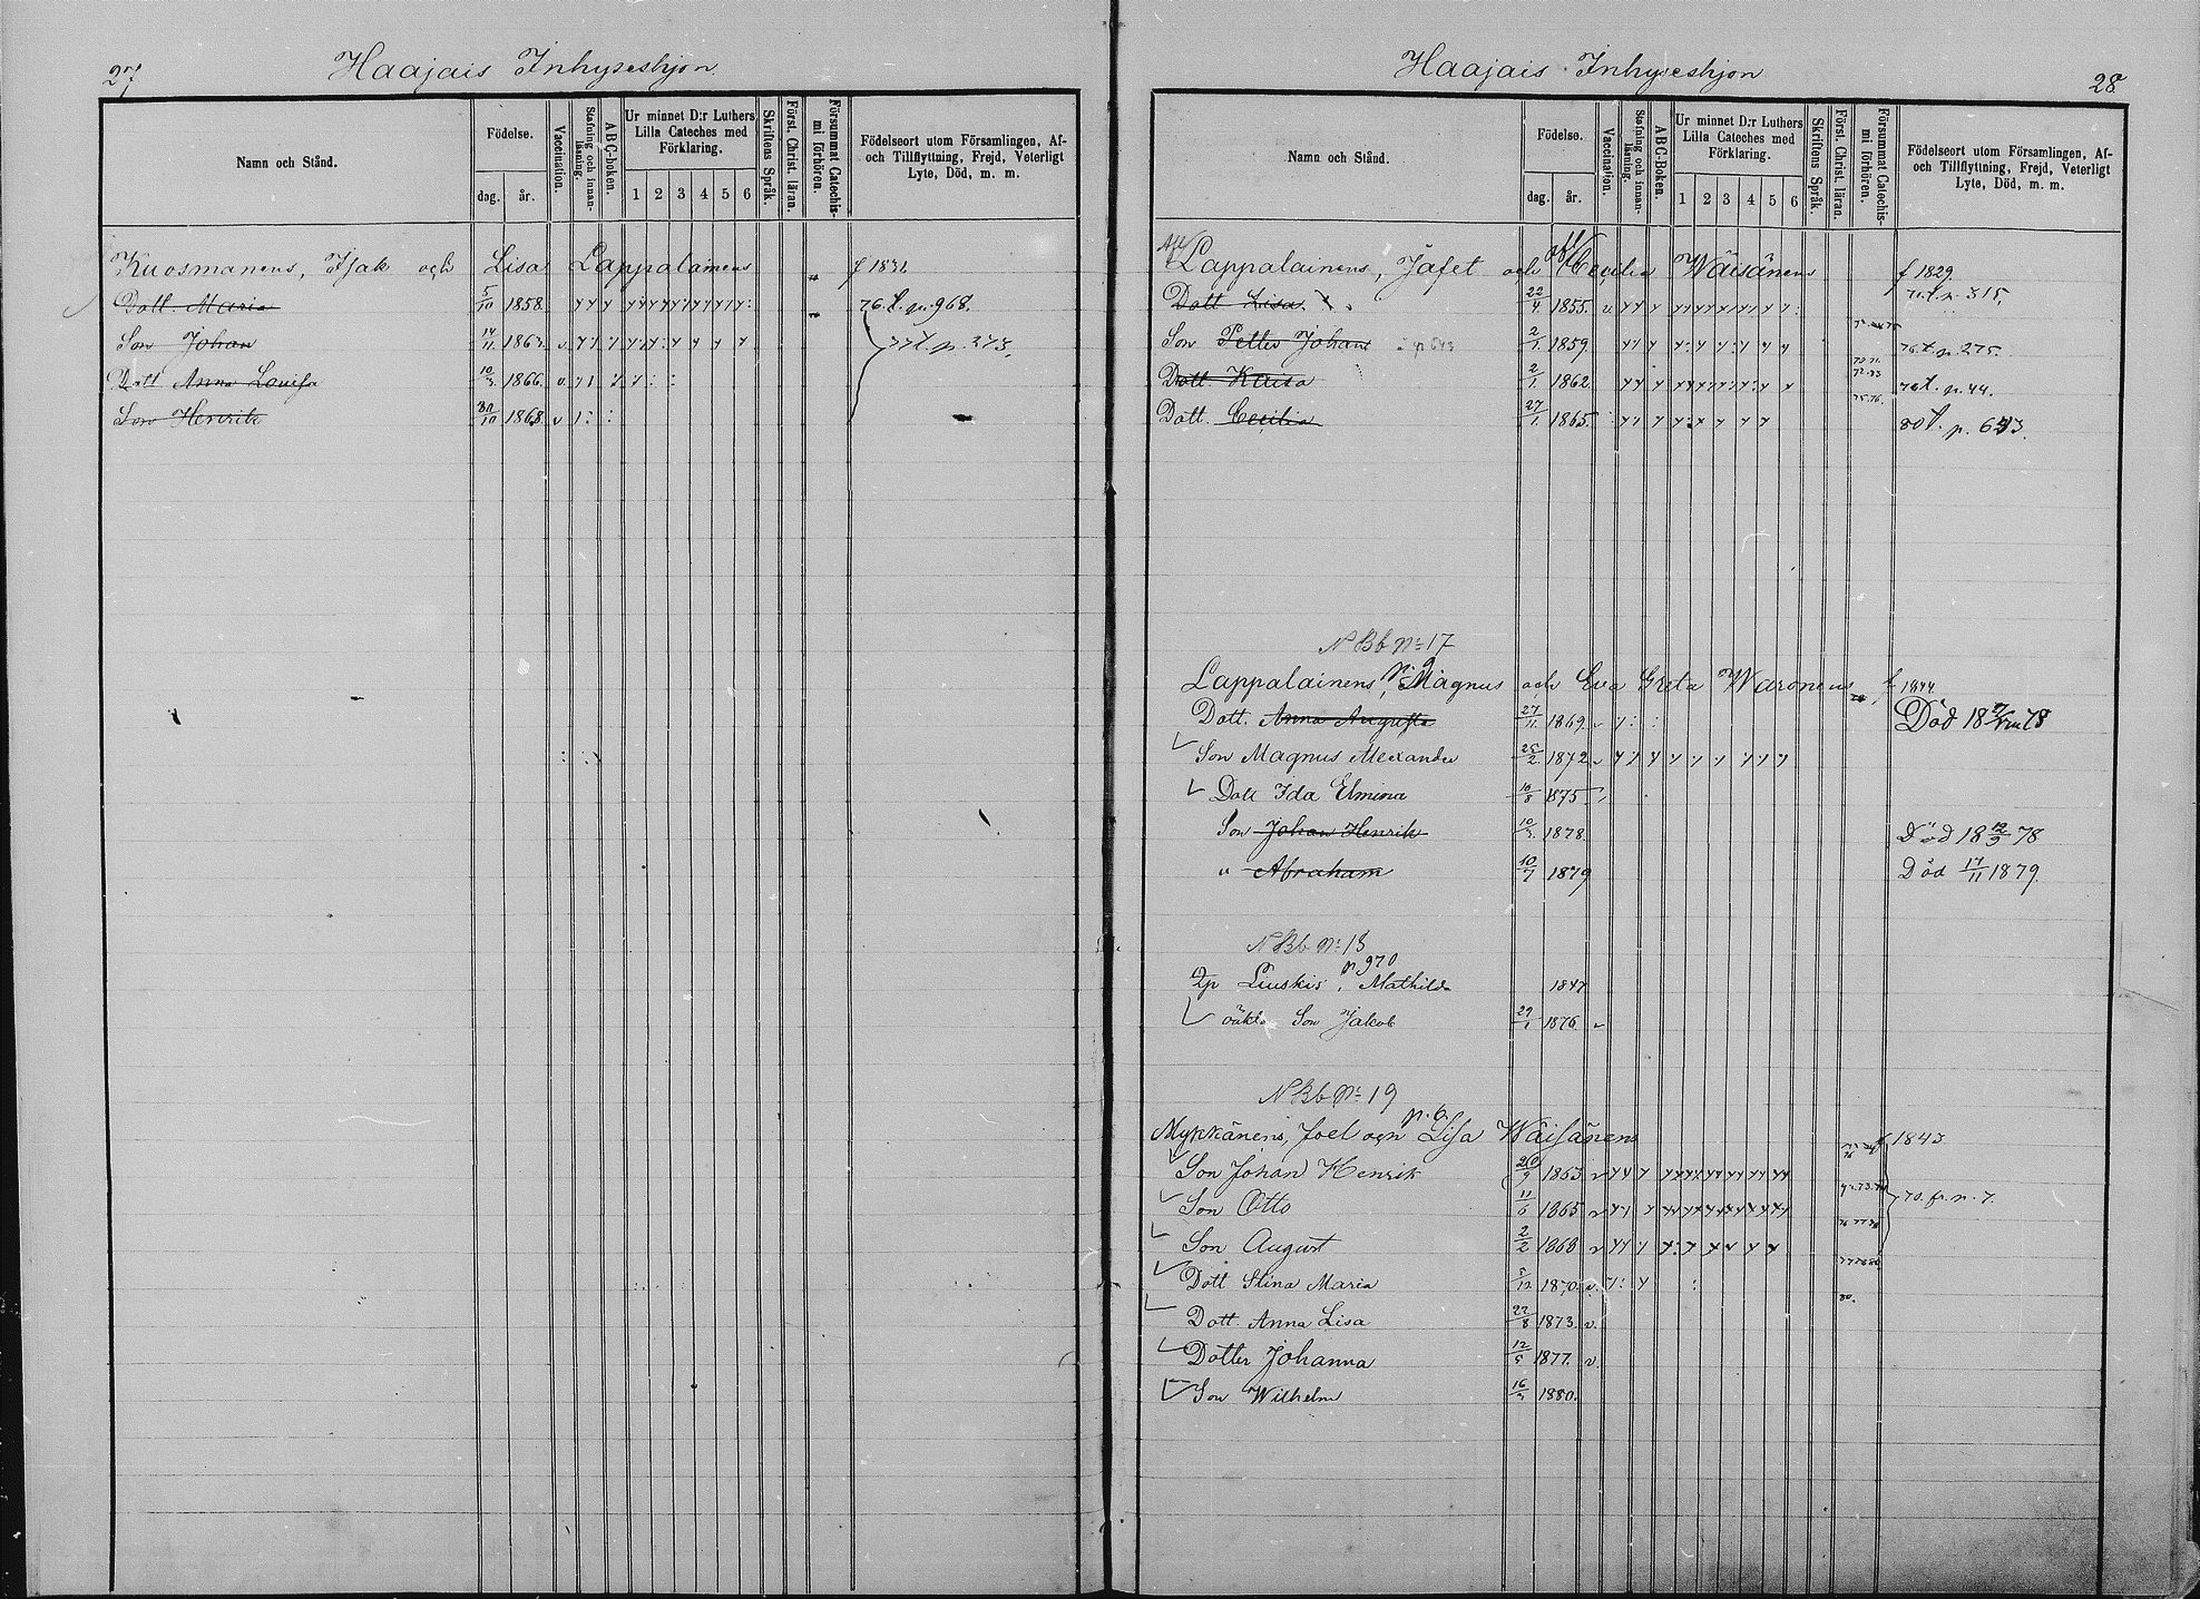 27
Haajais Inhyseshjon
Namn och Stånd.
Födelse.
dag. år.
Vaccination.
Stafning och innanläsning.
ABC-boken.
Ur minnet D:r Luthers Lilla Cateches med Förklaring.
1 2 3 4 5 6
Skriftens Språk.
Först. Christ. läran.
Försummat Catechismi förhören.
Födelseort utom Församlingen, Af- och Tillflyttning, Frejd, Veterligt Lyte, Död, m. m.
Kuosmanens, Isak och Lisa Lappalainens f 1831
Dott. Maria 5/10 1858. 76. t. p. 968.
Son Johan 14/11 1863. v 77 t. p. 373.
Dott Anna Lovisa 10/3 1866. v.
Son Henrik 30/10 1868. v
28
Haajais Inhyseshjon
Namn och Stånd.
Födelse.
dag. år.
Vaccination.
Stafning och innanläsning.
ABC-Boken.
Ur minnet D:r Luthers Lilla Cateches med Förklaring.
1 2 3 4 5 6
Skriftens Språk.
Först. Christ. läran.
Försummat Catechismi förhören.
Födelseort utom Församlingen, Af- och Tillflyttning, Frejd, Veterligt Lyte, Död, m. m.
Lappalainens, Jafet och Cecilia Wäisänens f 1829
Dott Lisa 22/4 1855. v t. p. 315.
Son Petter Johan 2/1 1859. 76. t. p. 275.
Dott. Kaisa 2/1 1862. t. p. 44.
Dott. Cecilia 27/1 1865. 80 t. p. 643.
N Bb No 17
p. 9
Lappalainens, Magnus och Eva Greta Waronens f 1844
Dott. Anna Augusta 27/11 1869. v Död 18 78
Son Magnus Alexander 25/2 1872 v
Dott Ida Elmina 10/8 1875
Son Johan Henrik 10/3 1878. Död 18 12/9 78
" Abraham 10/7 1879 Död 17/11 1879.
N Bb No 18
p 970
Qp Liuskis, Mathilda 1847
oäkta Son Jakob 29/1 1876 v
N Bb No 19
p. 6.
Mykkänens, Joel och Lisa Wäisänens f 1843
Son Johan Henrik 20/9 1863 v
Son Otto 11/6 1865 v 70. fr. p. 7.
Son August 2/2 1868 v
Dott Stina Maria 5/12 1870. v.
Dott. Anna Lisa 22/8 1873. v. 80.
Dotter Johanna 12/5 1877. v.
Son Wilhelm 16/3 1880.